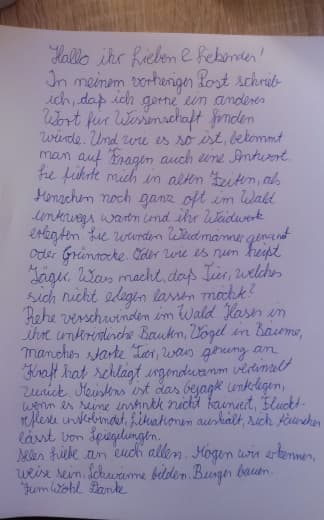 Hallo ihr Lieben & Liebenden!
In meinem vorherigen Post schrieb
ich, daß ich gerne ein anderes
Wort für Wissenschaft finden
würde. Und wie es so ist, bekommt
man auf Fragen auch eine Antwort.
Sie führte mich in alten Zeiten, als
Menschen noch ganz oft im Wald
unterwegs waren und ihr Waidwerk
erlegten. Sie wurden Weidmänner genannt
oder Grünröcke. Oder wie es nun heißt
Jäger. Was macht, daß Tier, welches
sich nicht erlegen lassen möchte?
Rehe verschwinden im Wald. Hasen in
ihre unterirdische Bauten, Vögel in Bäume,
manches starke Tier, was genung an
Kraft hat schlägt irgendwann vereinzelt
zurück. Meistens ist das bejagte unterlegen,
wenn es seine instinkte nicht trainiert, Flucht-
reflexe Situationen aushält, sich täuschen
lässt von Spiegelungen.
alles liebe an euch allen. Mögen wir erkennen,
weise sein, Schwärme bilden. Burgen bauen.
Zum Wohl Danke